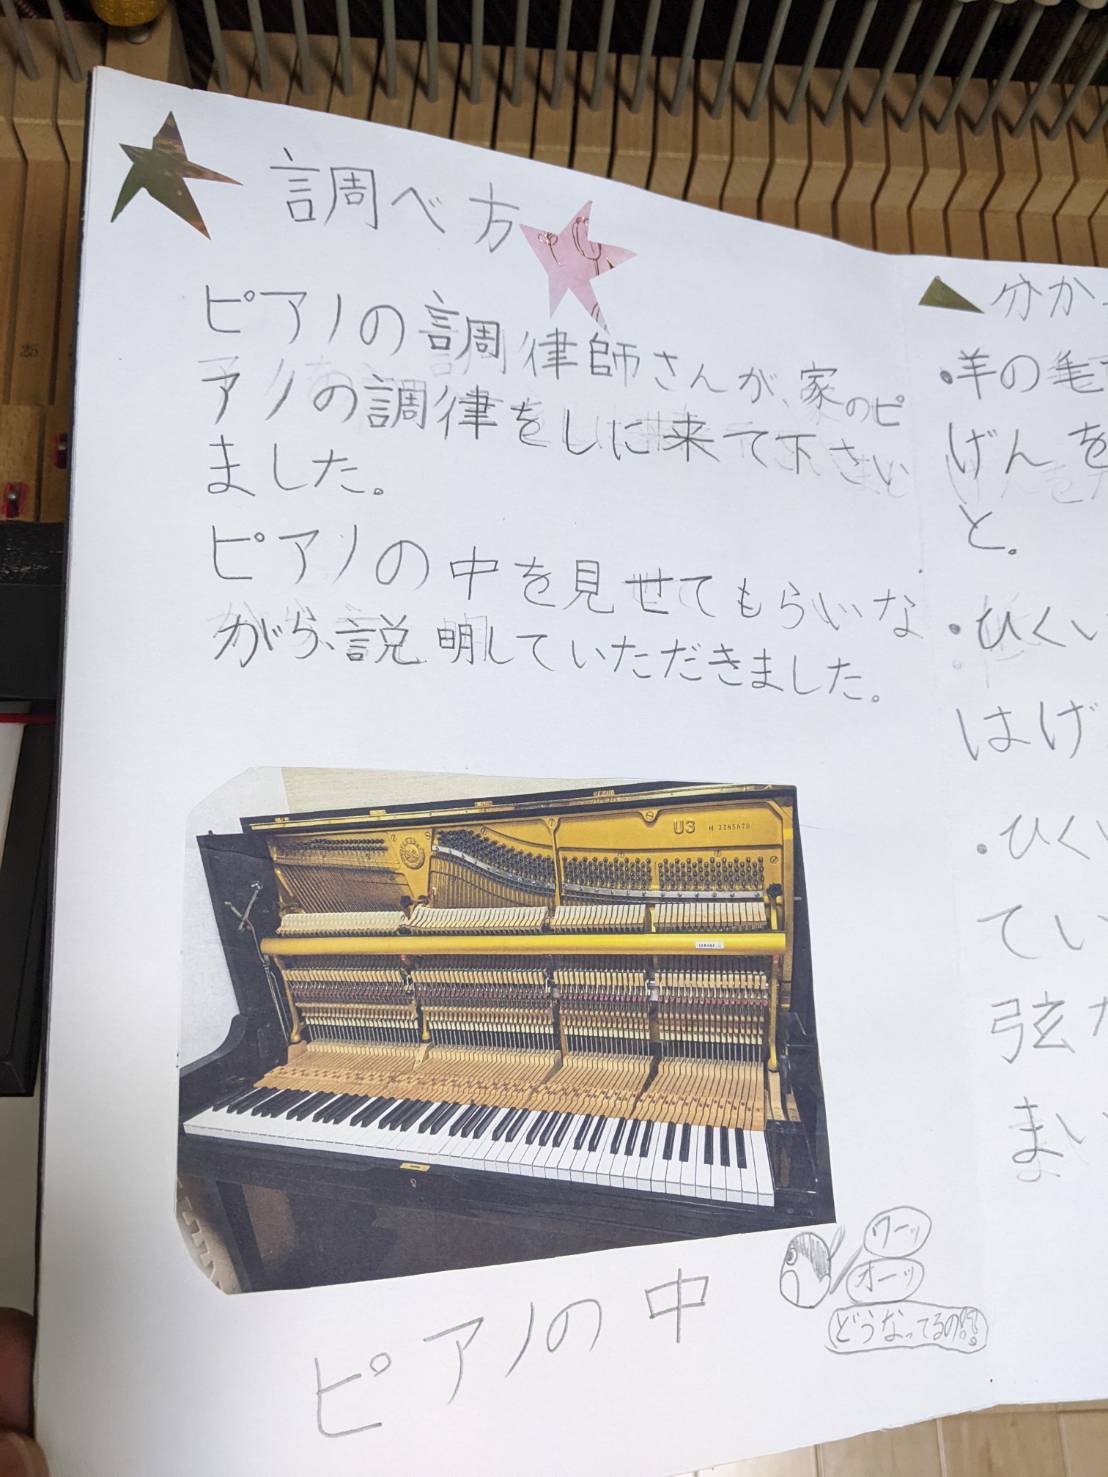 調べ方
ピアノの調律師さんが、家のピ
アノの調律をしに来て下さい
ました。
ピアノの中を見せてもらいな
がら、説明していただきました。
U3
H 3285678
ピアノの中
ワーッ
オーッ
どうなってるの!?
分か
・羊の毛
げんを
と。
・ひくい
はげ
・ひくい
てい
弦が
まい
25